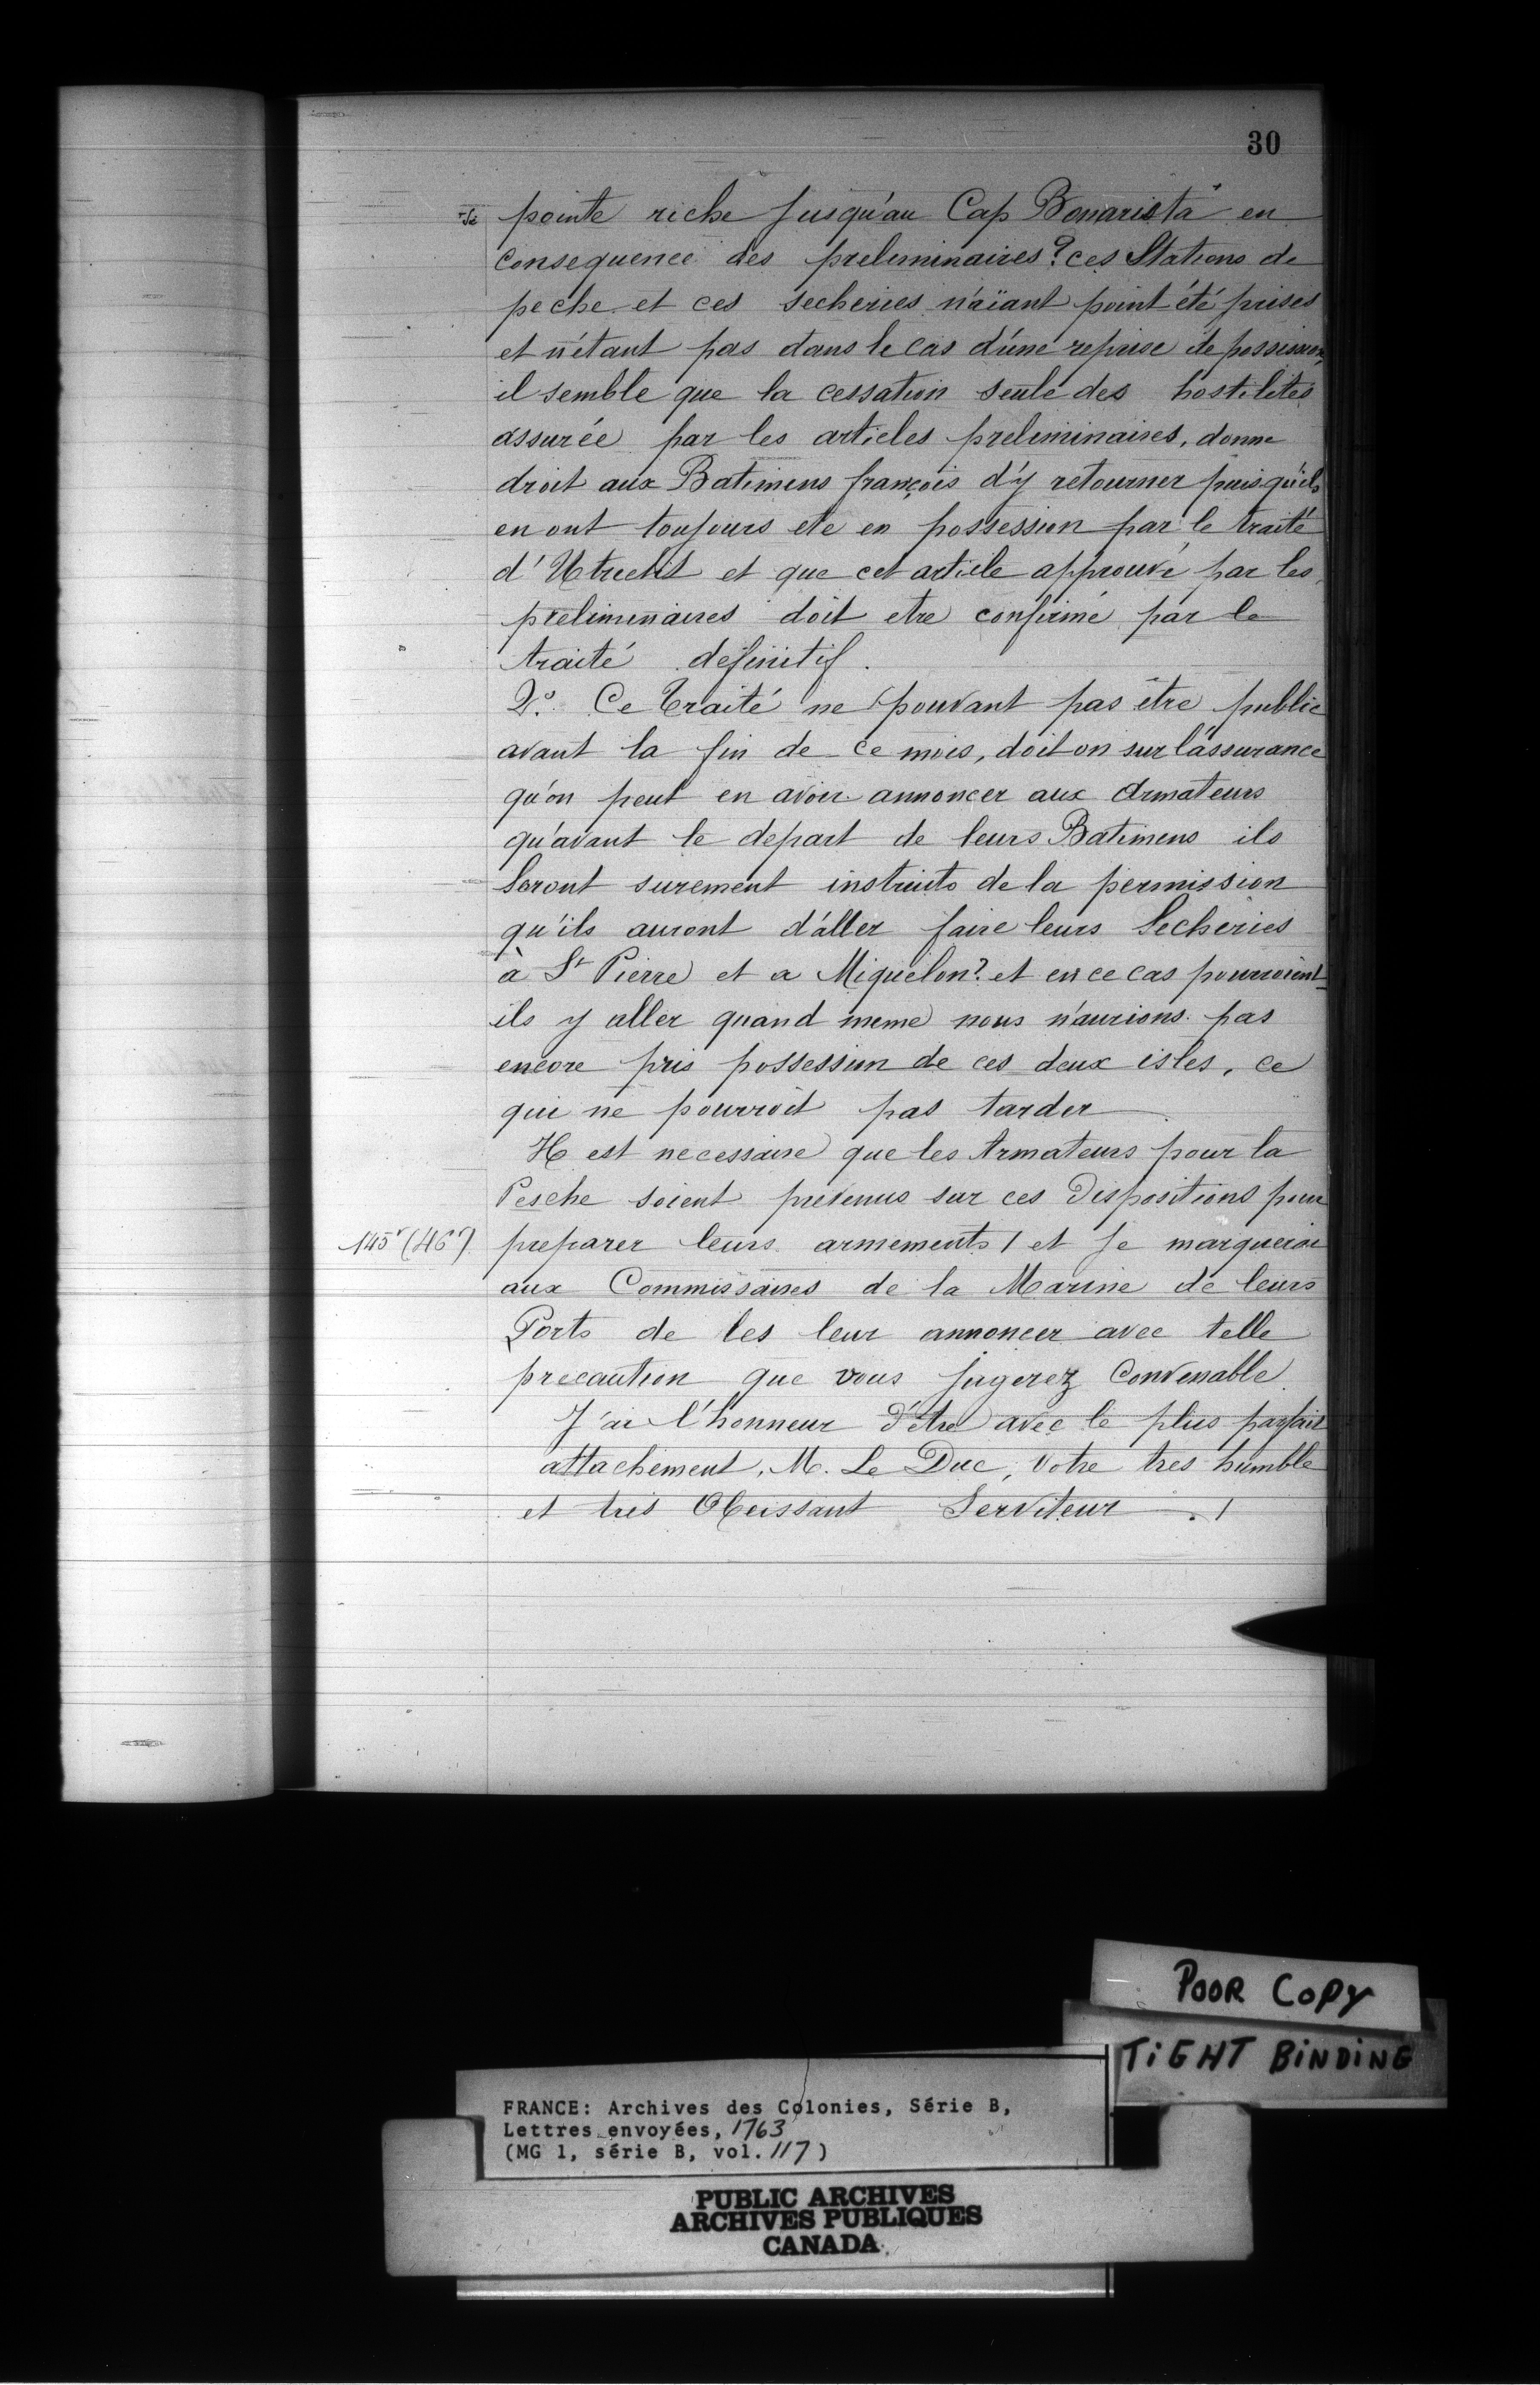 30
pointe riche Jusqu'au Cap Bonarista en
consequence des preliminaires? ces Stations de
peche et ces secheries n'aïant point été prises
et n'étant pas dans le cas d'une reprise de possession,
il semble que la cessation seule des hostilités
assurée par les articles preliminaires, donne
droit aux Batimens françois d'y retourner puis qu'ils
en ont toujours ete en possession par le traité
d'Utrecht et que cet article approuvé par les
preliminaires doit etre confirmé par le
traité definitif.
2º. Ce traité ne pouvant pas être public
avant la fin de ce mois, doit on sur l'assurance
qu'on peut en avoir annoncer aux Armateurs
qu'avant le depart de leurs Batimens ils
Seront surement instruits de la permission
qu'ils auront d'aller faire leurs Secheries
à St Pierre et a Miquelon? et en ce cas pourroient-
ils y aller quand meme nous n'aurions pas
encore pris possession de ces deux isles, ce
qui ne pourroit pas tarder.
Il est necessaire que les Armateurs pour la
Pesche soient prévenus sur ces Dispositions pour
145r (46r) preparer leurs armements / et Je marquerai
aux Commissaires de la Marine de leurs
Ports de les leur annoncer avec telle
precaution que vous jugerez Convenable
J'ai l'honneur d'être avec le plus parfait
attachement, M. Le Duc, Votre tres humble
et tres Obeissant Serviteur ./
POOR COPY
TIGHT BINDING
FRANCE: Archives des Colonies, Série B,
Lettres envoyées, 1763
(MG 1, série B, vol. 117)
PUBLIC ARCHIVES
ARCHIVES PUBLIQUES
CANADA